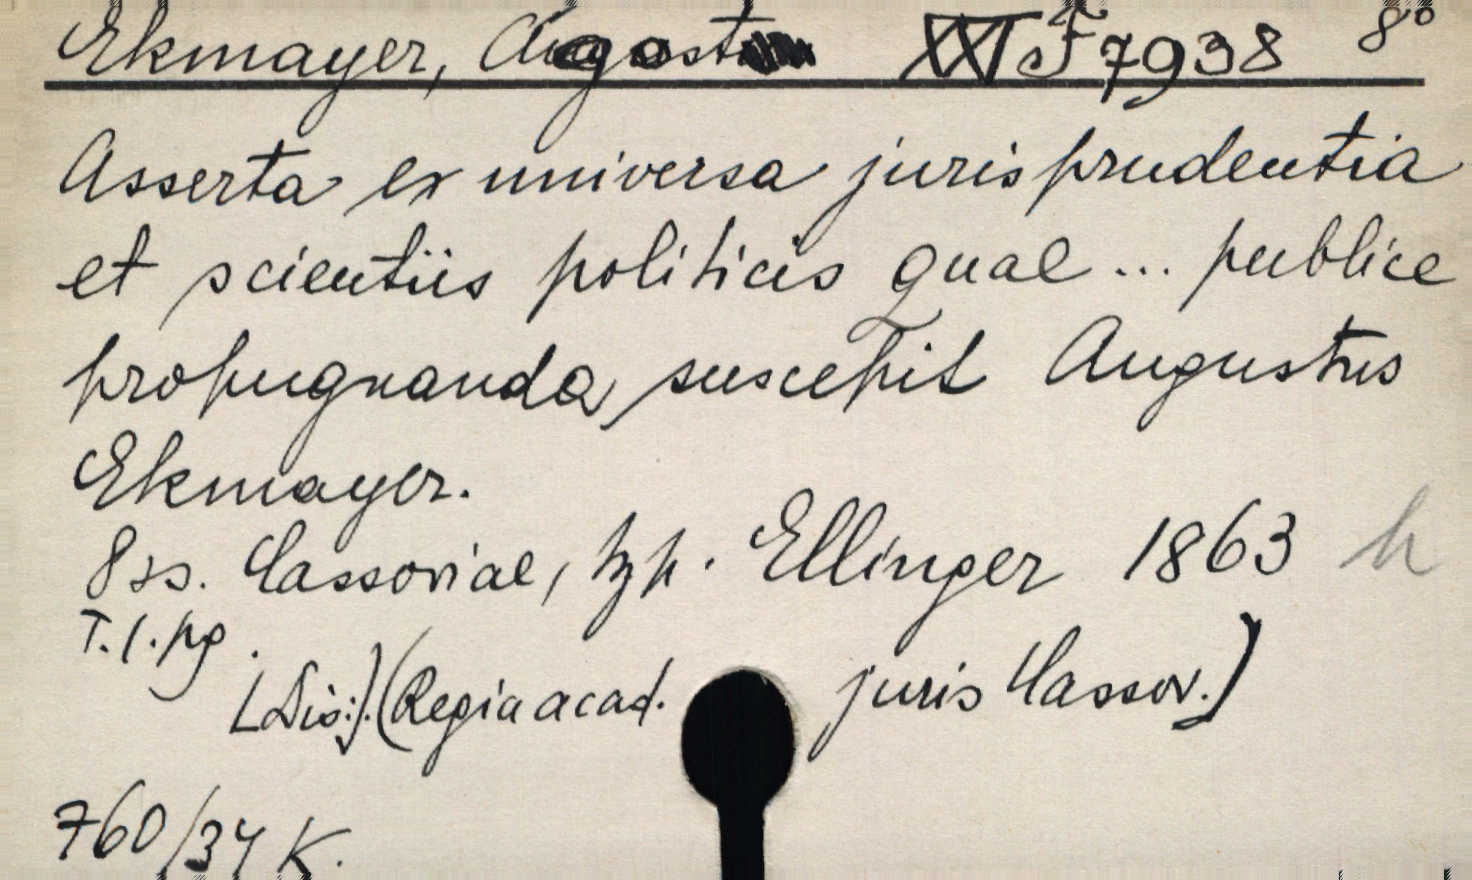 Ekmayer, Agost XXI F 7938 8°
Asserta ex universa jurisprudentia
et scientiis politicis quae ... publice
propugnanda suscepit Augustus
Ekmayer.
8 ss. Cassoviae, typ. Ellinger 1863 h
T. l. pg.
[Dis:]. (Regia acad. juris Cassov.)
760/34 K.